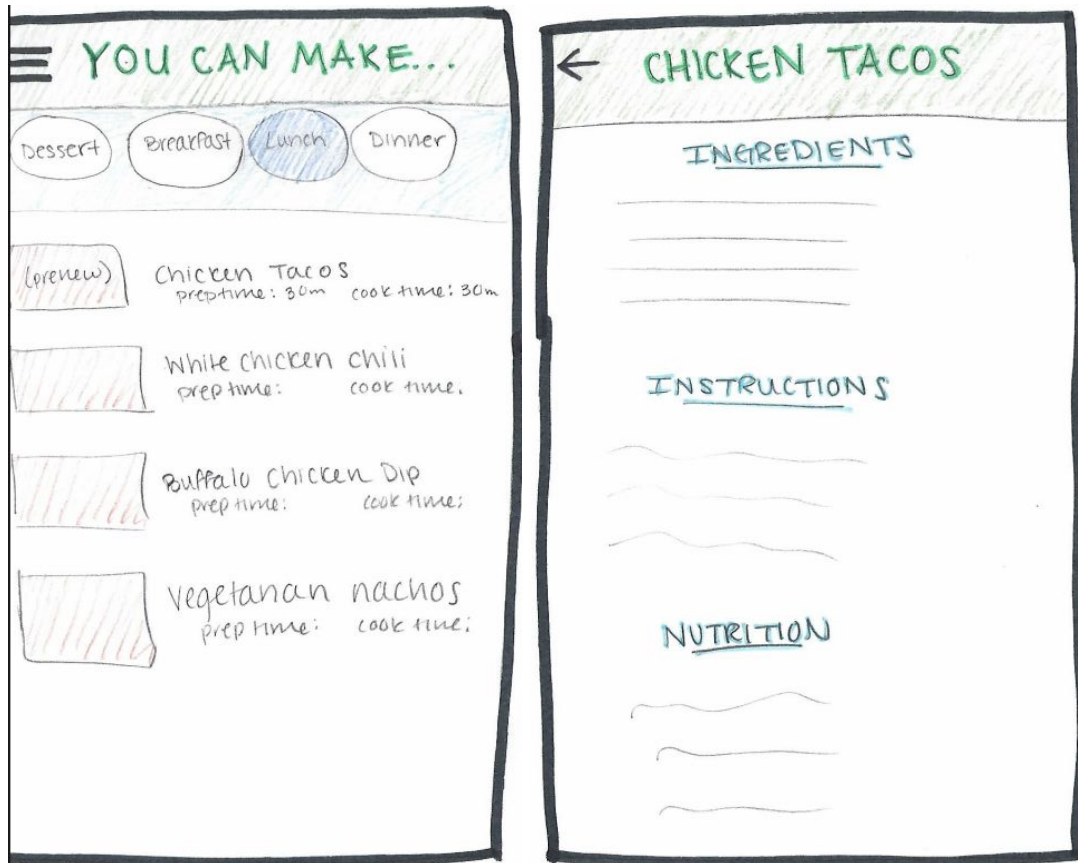 YOU CAN MAKE...
Dessert Breakfast Lunch Dinner
(preview) Chicken Tacos
prep time: 30m cook time: 30m
White chicken chili
prep time: cook time:
Buffalo Chicken Dip
prep time: cook time:
Vegetarian nachos
prep time: cook time:
CHICKEN TACOS
INGREDIENTS
INSTRUCTIONS
NUTRITION